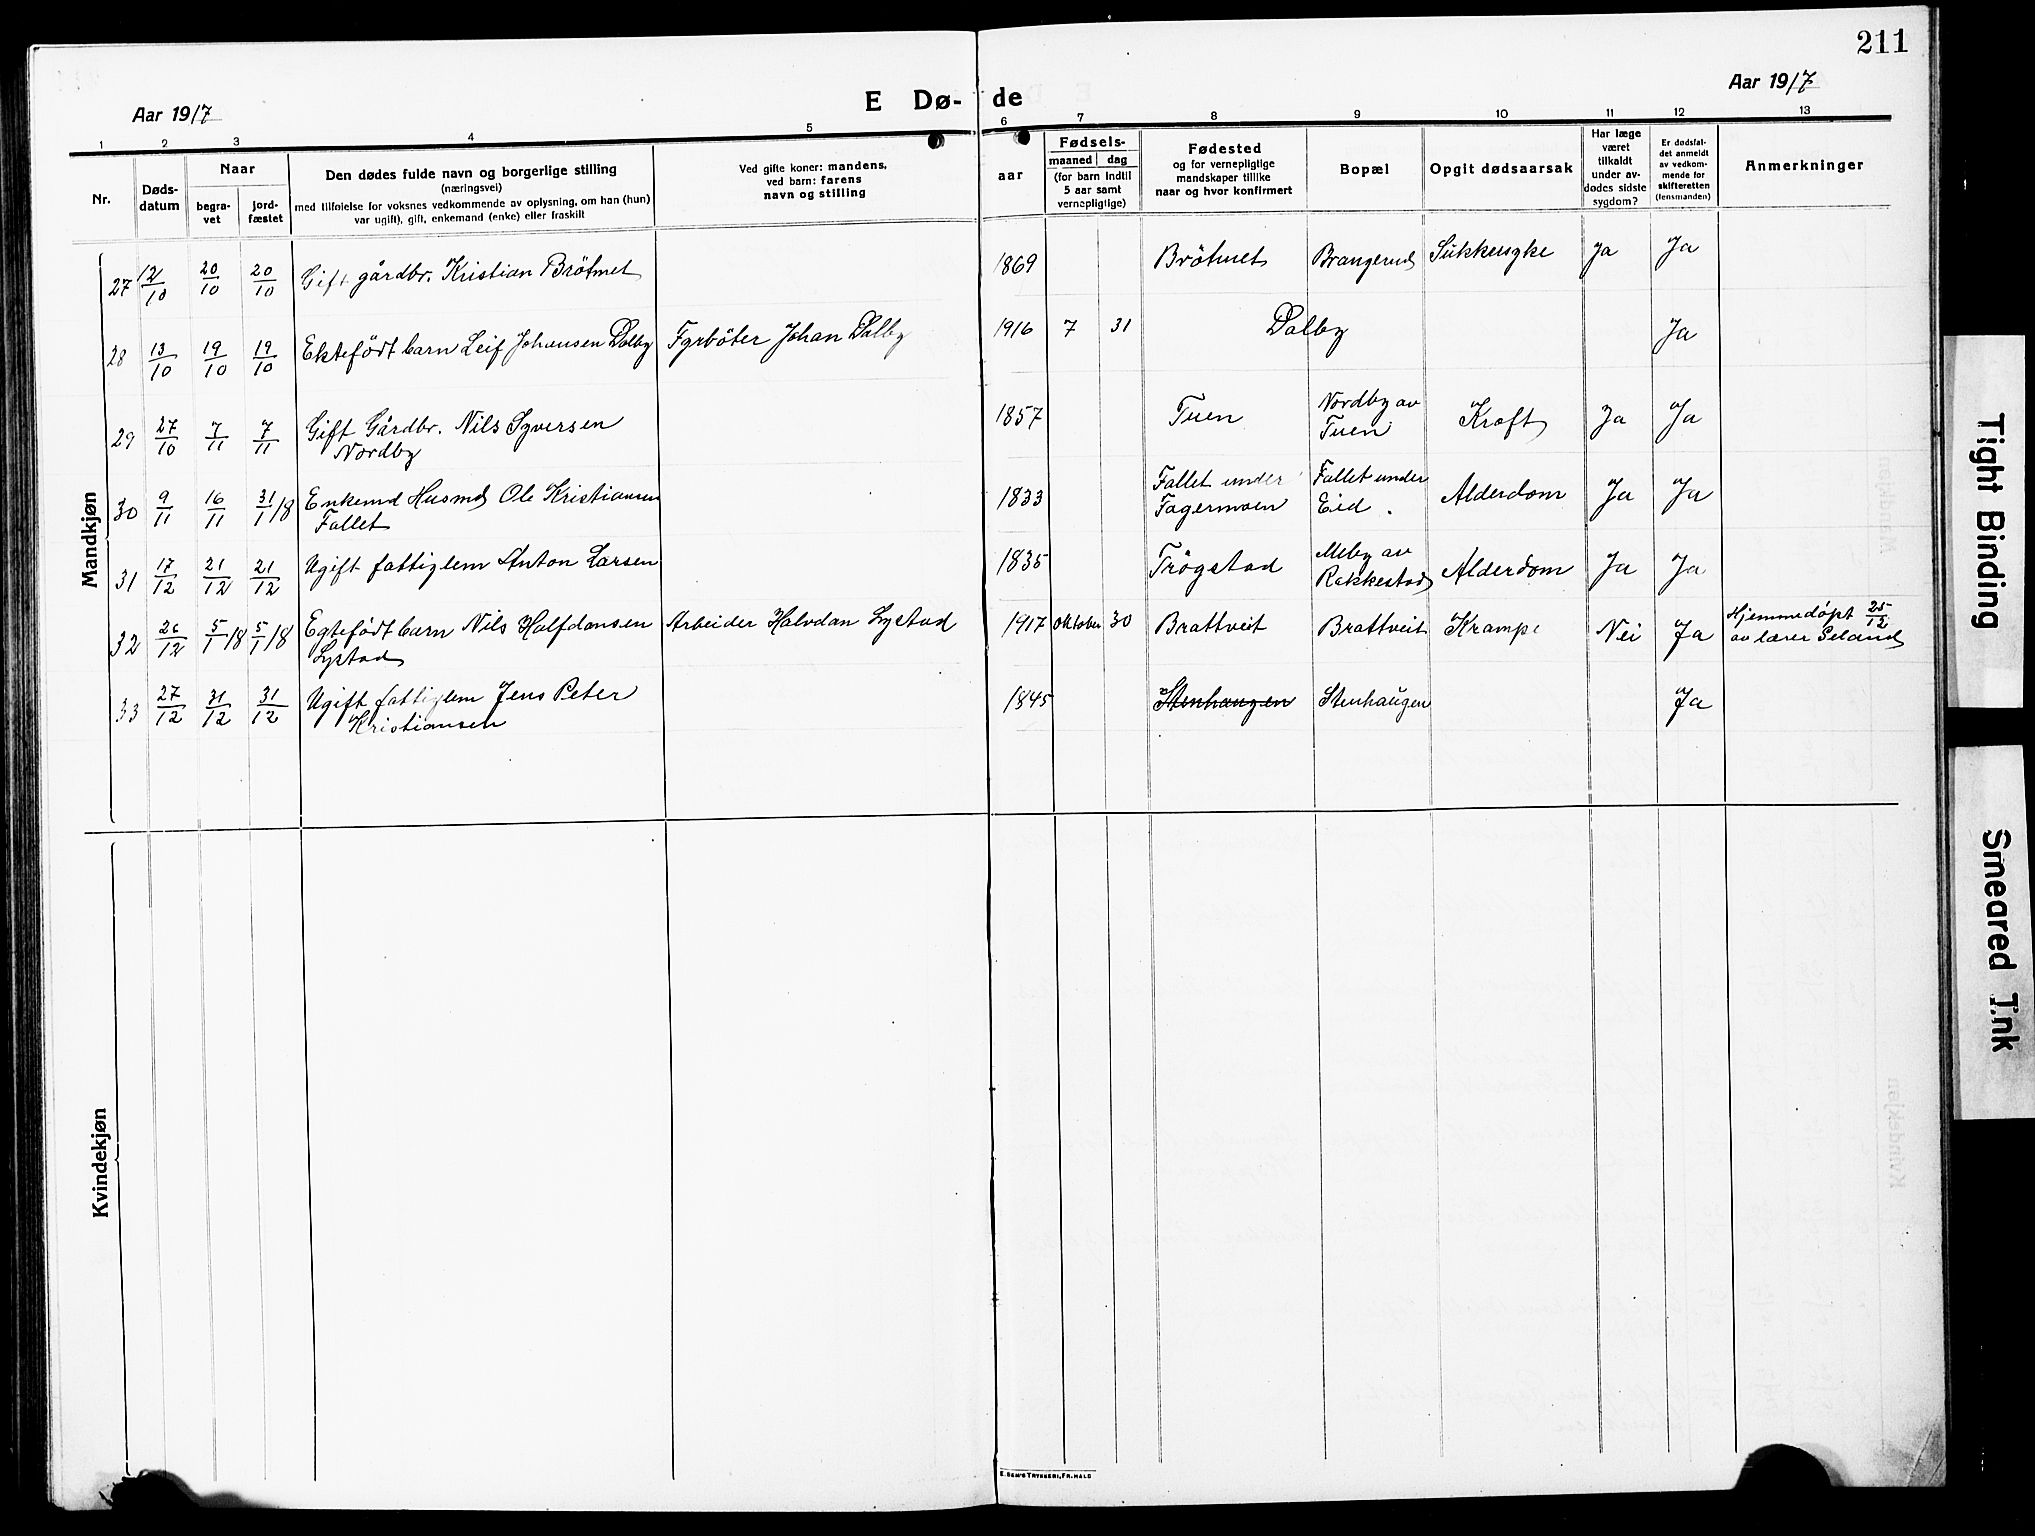 211
Aar 1917
E Dø- de
Aar 1917
1 2 3 4 5 6 7 8 9 10 11 12 13
Nr.
Døds-
datum
Naar
begra-
vet
jord-
fæstet
Den dødes fulde navn og borgerlige stilling
(næringsvei)
med tilføielse for voksnes vedkommende av oplysning, om han (hun)
var ugift), gift, enkemand (enke) eller fraskilt
Ved gifte koner: mandens,
ved barn: farens
navn og stilling
aar
Fødsels-
maaned dag
(for barn indtil
5 aar samt
vernepligtige)
Fødested
og for vernepligtige
mandskaper tillike
naar og hvor konfirmert
Bopæl
Opgit dødsaarsak
Har læge
været
tilkaldt
under av-
dødes sidste
sygdom?
Er dødsfal-
det anmeldt
av vedkom-
mende for
skifteretten
(lensmanden)
Anmerkninger
Mandkjøn
27 12/10 20/10 20/10 Gift gårdbr. Kristian Brötmet 1869 Brötmet Brangerud Sukkersyke Ja Ja
28 13/10 19/10 19/10 Ektefödt barn Leif Johansen Dalby Fyrböter Johan Dalby 1916 7 31 Dalby Ja
29 27/10 7/11 7/11 Gift Gårdbr. Nils Syversen
Nordby
1857 Tuen Nordby av
Tuen
Kræft Ja Ja
30 9/11 16/11 31/1 18 Enkemd Husmd Ole Kristiansen
Fallet
1833 Fallet under
Fagermoen
Fallet under
Eid.
Alderdom Ja Ja
31 17/12 21/12 21/12 Ugift fattiglem Anton Larsen 1835 Trögstad Meby av
Rakkestad
Alderdom Ja Ja
32 26/12 5/1 18 5/1 18 Egtefödt barn Nils Halfdansen
Lystad
Arbeider Halvdan Lystad 1917 Oktober 30 Brattveit Brattveit Krampe Nei Ja Hjemmedöpt 25/12
av lærer Seland
33 27/12 31/12 31/12 Ugift fattiglem Jens Peter
Kristiansen
1845 Stenhaugen Stenhaugen Ja
Kvindekjøn
E. SEM'S TRYKKERI, FR.HALD
Tight Binding
Smeared Ink